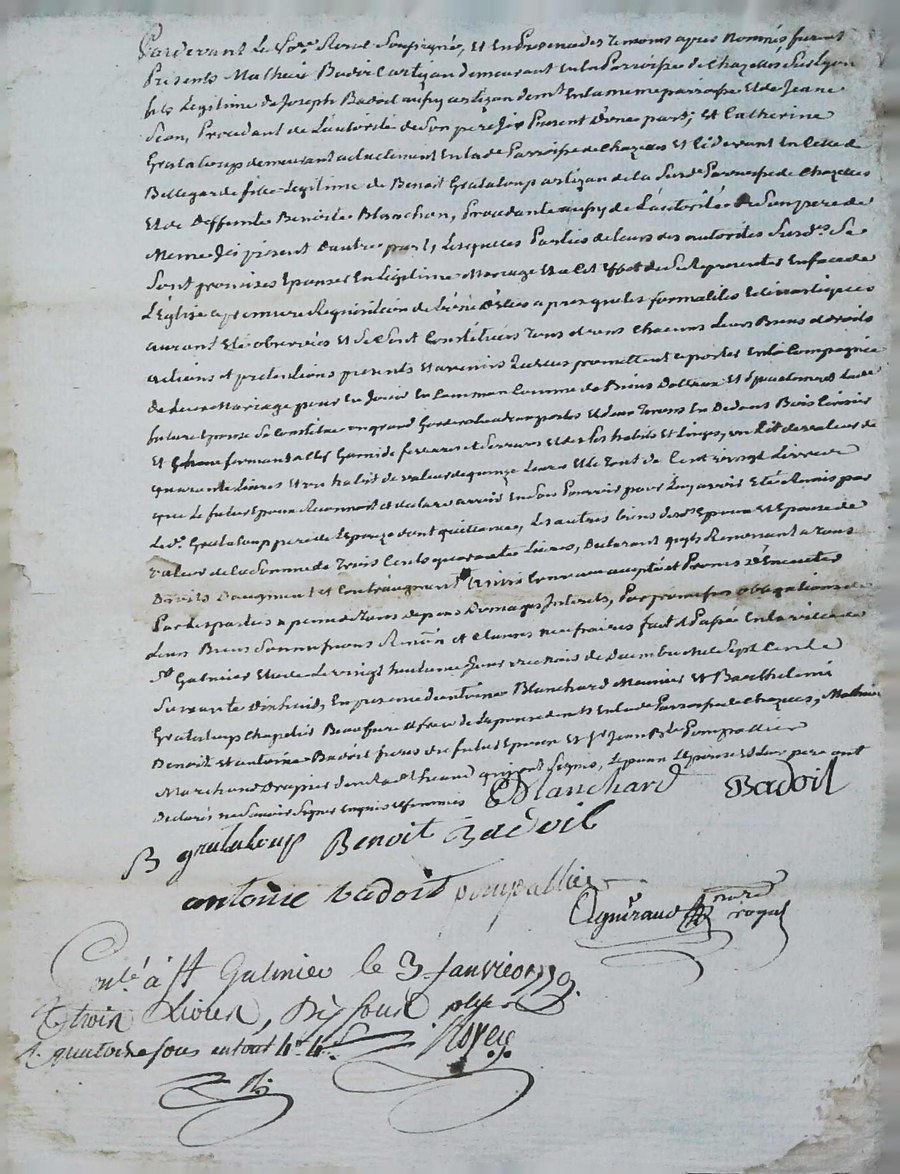 Pardevant Le No.re Royal Soussigné, et En Presence des Temoins apres Nommés furent
Présents Mathieu Badoil artizan demeurant En la Parroisse de Chazelles Sur Lyon
fils Legitime de Joseph Badoil aussy artizan dem.t En la meme parroisse Et de Jeane
Jean, Procedant de L'autorité de Son pere Jci Present D'une part; et Catherine
Grataloup demeurant actuelement En lad.e Parroisse de Chazelles Et Cidevant En Celle de
Bellegarde fille Legitime de Benoit Grataloup artizan de la Susd.e Parroisse de Chazelles
Et de Deffunte Benoite Blanchon, Procedante aussy de L'autorité De Son pere de
Meme Jci présent D'autre part, Lesquelles Parties de Leurs des autorites Susd.es Se
Sont promises Epouser En Legitime Mariage Et a Cet Effet de Se Representer En face de
L'Eglise a premiere Requisition de L'une D'Elles apres que les formalités Ecclesiastiques
auront Eté observées Et Se Sont Constitués Tous et uns Chacuns Leurs Biens et droits
actions et pretentions presents Et avenirs promettent aporter En la Compagnie
De Leur Mariage pour En Jouir En Commun Comme de Biens Dotaux Et Specialement Lade
future Epouse Se Constitue un grand Garderobe a deux portes Et deux Tiroirs En Dedant Bois Cerisier
Et fermant a Clef Garni de ferrures et Serrures Et de Ses habits Et Linges, un Lit de valeur de
quarante Livres Et un habit de valeur de quinze Livres Et le Tout de Cent vingt Livres
que Le futur Epoux Reconnoit et declare avoir En Son Pouvoir pour Luy avoir Eté Remis par
Led. Grataloup pere de L'epouze dont quittance, Les autres biens desd. Epoux Et Epouse de
valeur de la Somme de Trois Cents quarante Livres, Declarant quils Renoncent a tous
Droits D'augment et Contraugment Ainsi Convenu accepté et Promis D'Executer
Par Les parties a peine de Tous depens Domages Interets, Par promesses obligations de
Leurs Biens Soumissions Renon.n et Clauses necessaires fait et Passé En la ville de
S.t Galmier Etude Le vingt huitieme Jour du mois de Decembre Mil Sept Cents
Soixante Dix huit, En presence d'antoine Blanchard Meunier Et Barthelemi
Grataloup Chapelier Beaufrere et frere de L'epouse dem.ts En lad.e Parroisse de Chazelles, Mathieu
Benoit Et antoine Badoil freres du futur Epoux Et S.r Jean B.te Pompallier
Marchand Drapier dem.t aud. S.t heand qui ont Signé, Le futur L'epouse Et Leur pere ont
Declaré ne Savoir Signer Enquis et Sommés
Blanchard Badoil
B grataloup Benoit Badoil
antoine Badoil pompallier
Aguiraud no.re royal
Con.lé à S.t Galmier le 3 Janvier 1779.
trois Livres, Dix Sous plus
quatorze sous en tout 4.tt 4.s Royer